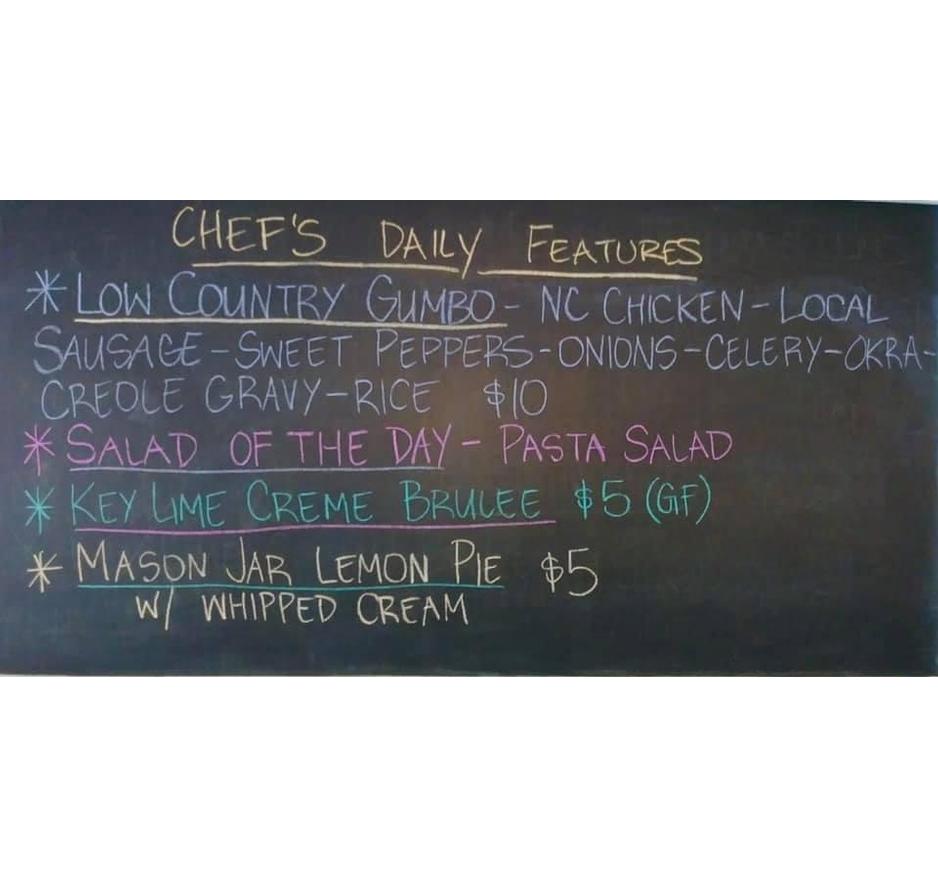 CHEF'S DAILY FEATURES
* LOW COUNTRY GUMBO - NC CHICKEN - LOCAL
SAUSAGE - SWEET PEPPERS - ONIONS - CELERY - OKRA -
CREOLE GRAVY - RICE $10
* SALAD OF THE DAY - PASTA SALAD
* KEY LIME CREME BRULEE $5 (GF)
* MASON JAR LEMON PIE $5
W/ WHIPPED CREAM